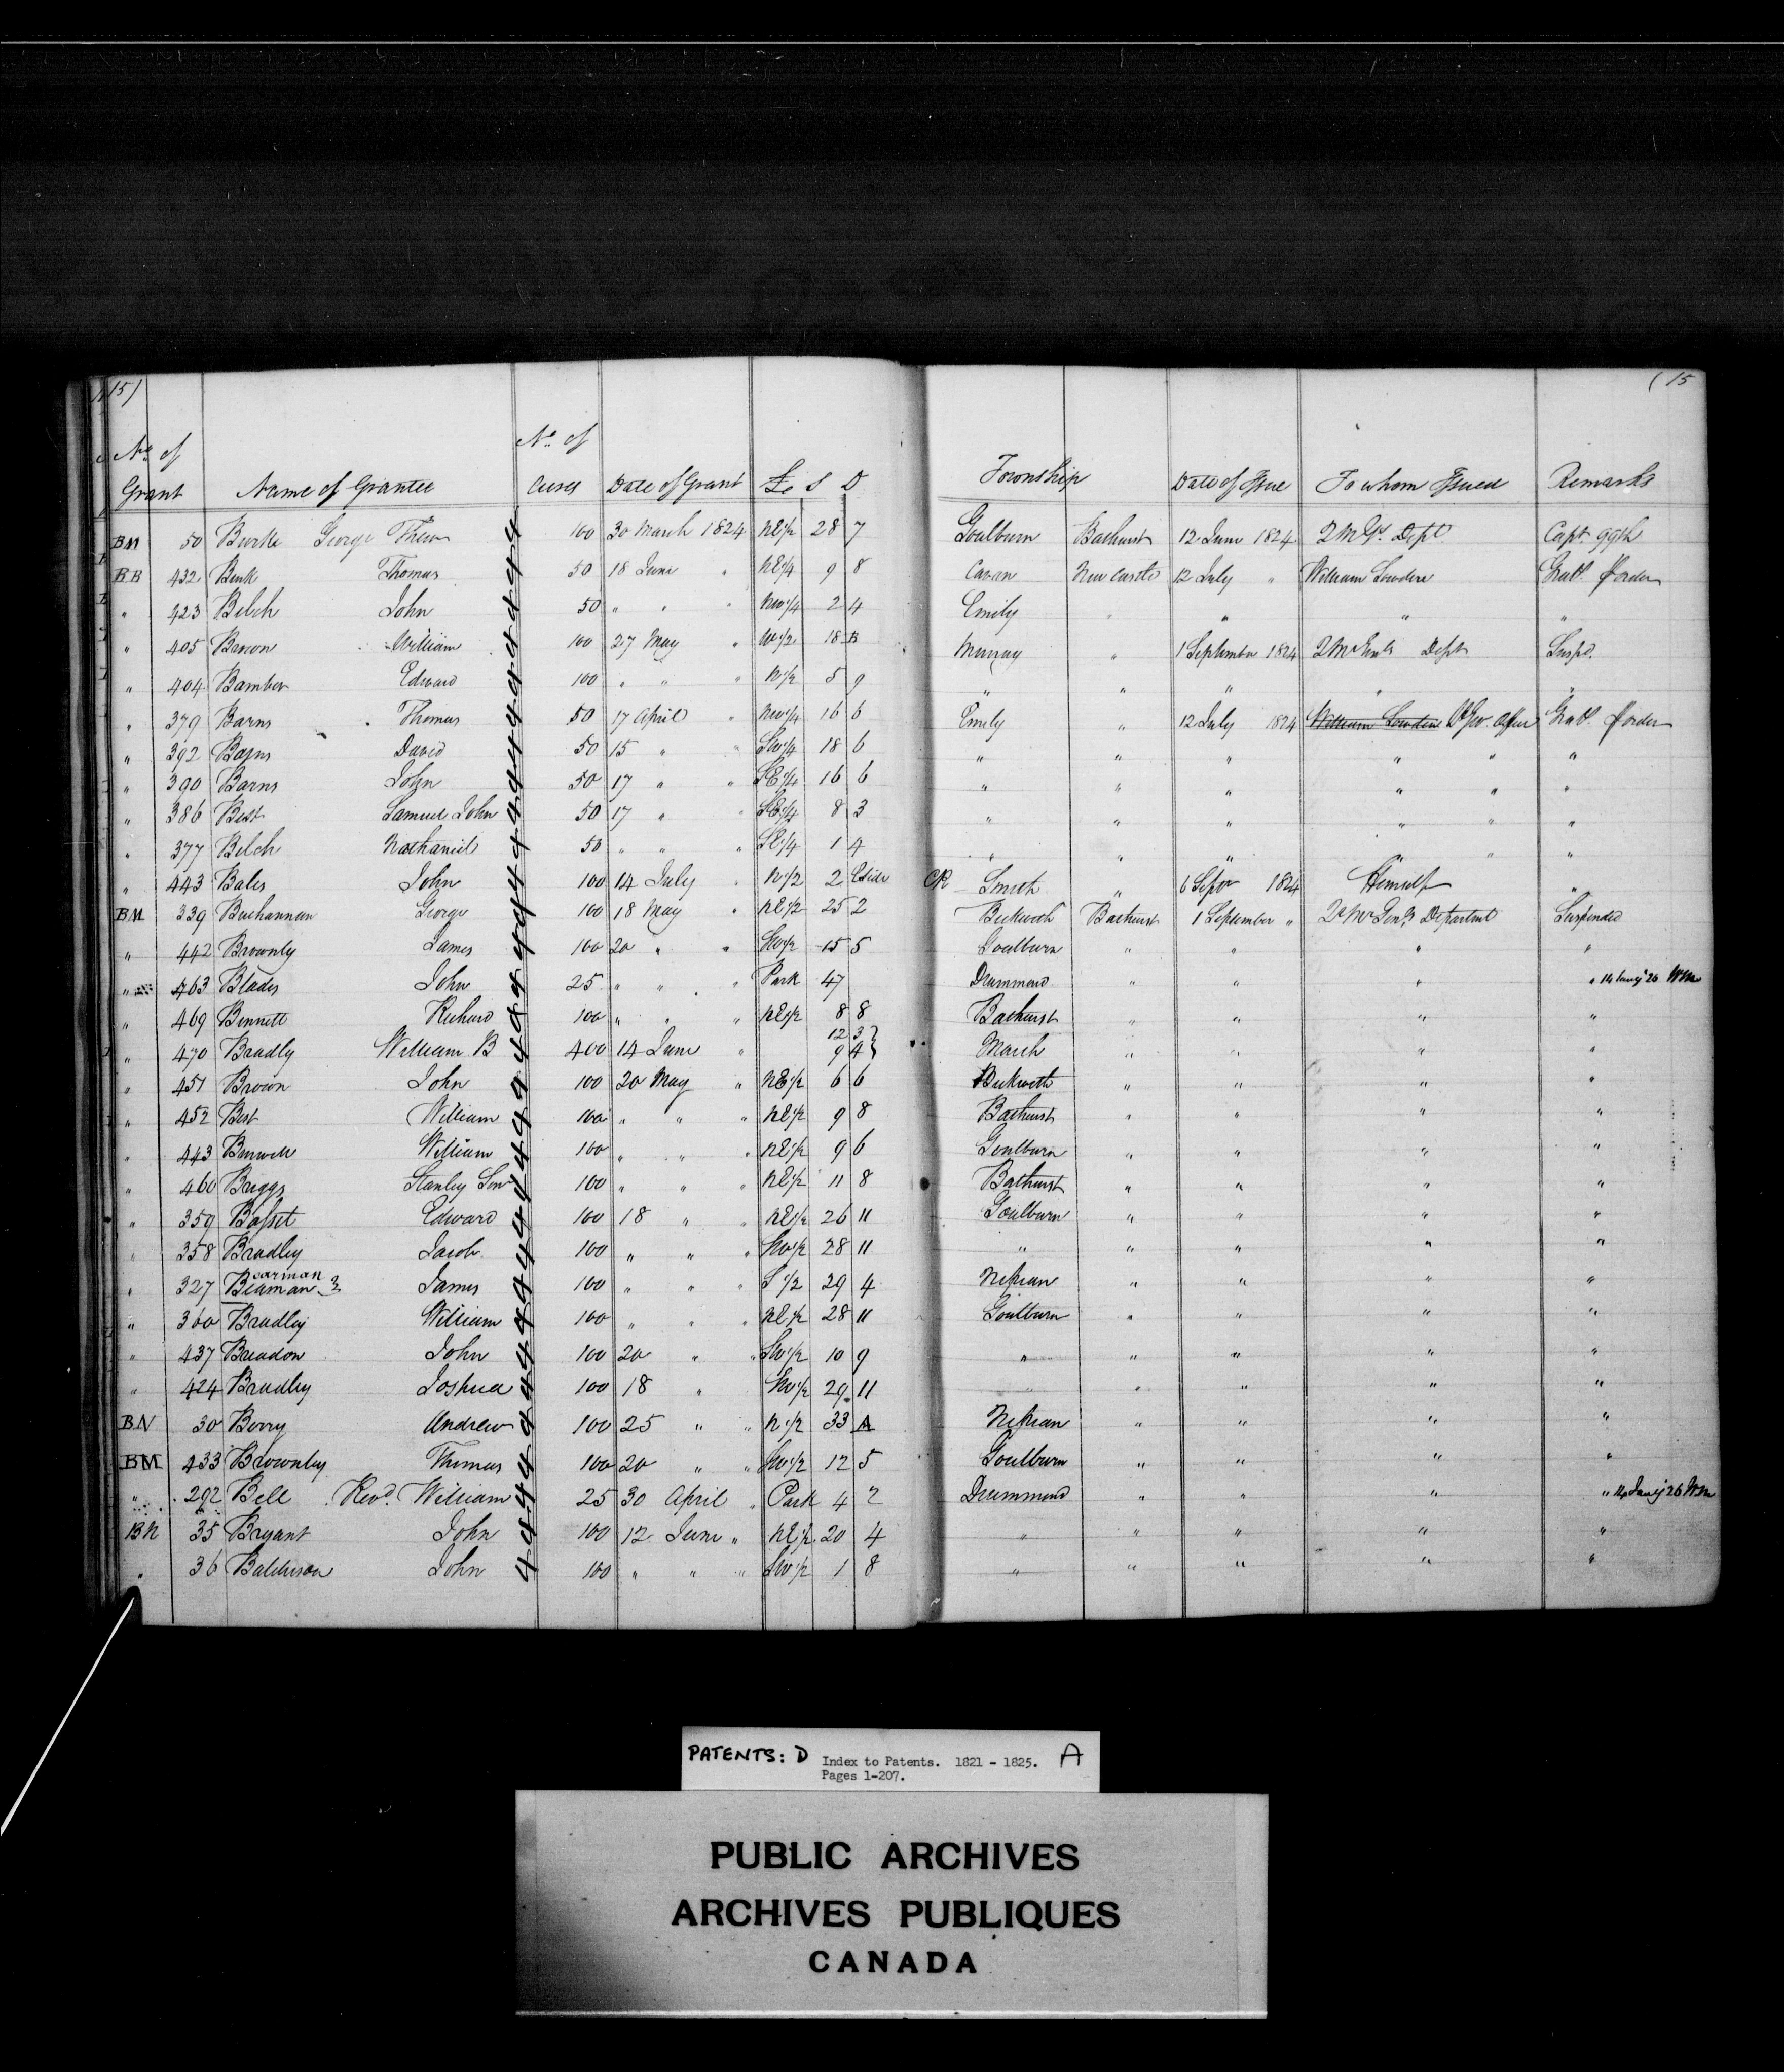 15) (15
No of Grant Name of Grantee No of Acres Date of Grant £ S D Township Date of Issue To whom Issued Remarks
BM 50 Burke George Thew 4 100 30 March 1824 NE½ 28 7 Goulburn Bathurst 12 June 1824 2 M Gs Dept Capt 99th
BB 432 Burk Thomas 4 50 18 June " NE¼ 9 8 Cavan New Castle 12 July " William Lowden
" 423 Belch John 4 50 " " " NW¼ 2 4 Emily " " " "
" 405 Benson William 4 100 27 May " W½ 18 B Murray " 1 September 1824 2 M Genls Dept Suspd.
" 404 Bamber Edward 4 100 " " " N½ 5 9 " " " " "
" 379 Barns Thomas 4 50 17 April " NW¼ 16 6 Emily " 12 July 1824 William Lowden
" 392 Barns David 4 50 15 " " SW¼ 18 6 " " " " " "
" 390 Barns John 4 50 17 " " SE¼ 16 6 " " " " " "
" 386 Best Samuel John 4 50 17 " " SE¼ 8 3 " " " " " "
" 377 Belch Nathaniel 4 50 " " " SE¼ 1 4 " " " " " "
" 443 Bales John 4 100 14 July " N½ 2 Eside CR Smith " 6 Sepr 1824 Himself "
BM 339 Buchannan George 4 100 18 May " NE½ 25 2 Beckwith Bathurst 1 September " Qr Mr Genls Department Suspended
" 442 Brownly James 4 100 20 " " SW½ 15 5 Goulburn " " " "
" 463 Blades John 4 25 " " " Park 47 Drummond " " " " 14 Jany 26 WM
" 469 Bennett Richard 4 100 " " " NE½ 8 8 Bathurst " " " "
" 470 Bradly William B 4 400 14 June " 12 3 } 9 4 } March " " " "
" 451 Brown John 4 100 20 May " NE½ 6 6 Beckwith " " " "
" 452 Best William 4 100 " " " NE½ 9 8 Bathurst " " " "
" 443 Burwell William 4 100 " " " NE½ 9 6 Goulburn " " " "
" 460 Briggs Stanley Senr 4 100 " " " NE½ 11 8 Bathurst " " " "
" 359 Basset Edward 4 100 18 " " NE½ 26 11 Goulburn " " " "
" 358 Bradley Jacob 4 100 " " " SW½ 28 11 " " " " "
" 327 Beaman earman James 4 100 " " " S½ 29 4 Nepean " " " "
" 360 Bradley William 4 100 " " " NE½ 28 11 Goulburn " " " "
" 437 Breadon John 4 100 20 " " SW½ 10 9 " " " " "
" 424 Bradley Joshua 4 100 18 " SW½ 29 11 " " " " "
BN 30 Berry Andrew 4 100 25 " " N½ 33 A Nepean " " " "
BM 433 Brownley Thomas 4 100 20 " " SW½ 12 5 Goulburn " " " "
" 292 Bell Revd. William 4 25 30 April " Park 4 2 Drummond " " " " 14 Jany 26 WM
BN 35 Bryant John 4 100 12 June " NE½ 20 4 " " " " "
" 36 Balderson John 4 100 " " " SW½ 1 8 " " " " "
PATENTS: D Index to Patents. 1821 - 1825. A
Pages 1-207.
PUBLIC ARCHIVES
ARCHIVES PUBLIQUES
CANADA